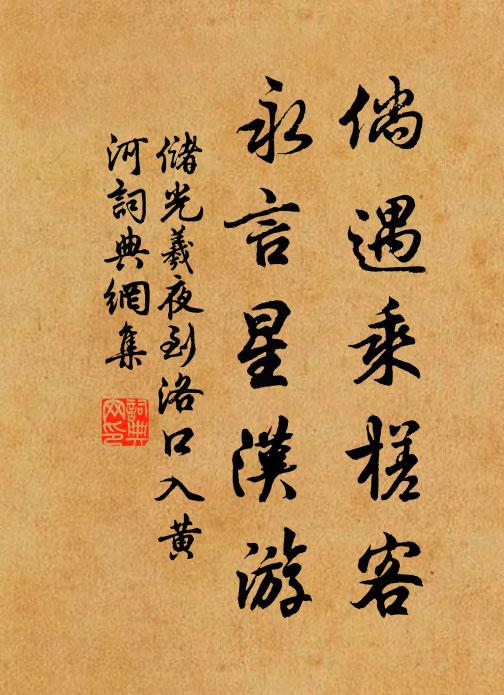 倘遇乘槎客
永言星漢游
儲光羲夜到洛口入黄
河詞典網集
詞典
网印